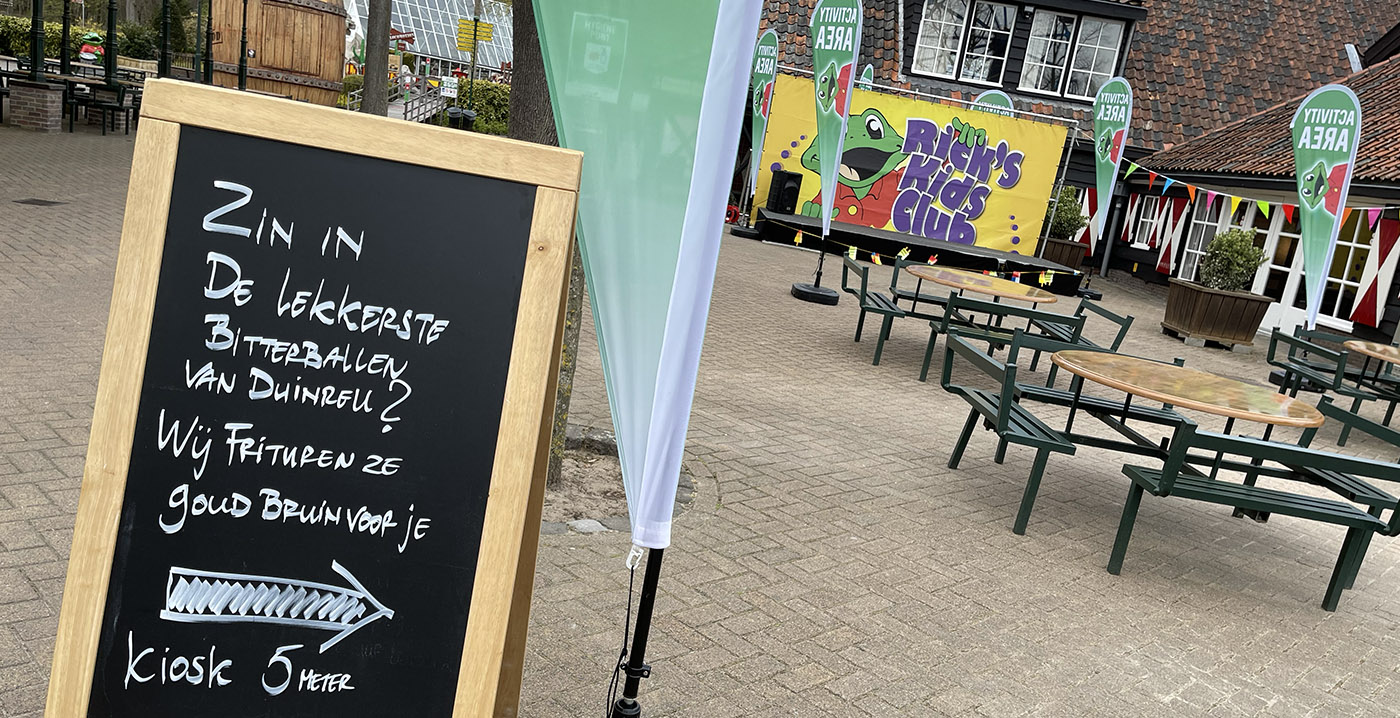 Zin in
De lekkerste
Bitterballen
van Duinrell?
Wij Frituren ze
goud Bruin voor je
Kiosk 5 meter
ACTIVITY
AREA
Rick's
Kids
Club
ACTIVITY
AREA
ACTIVITY
AREA
ACTIVITY
AREA